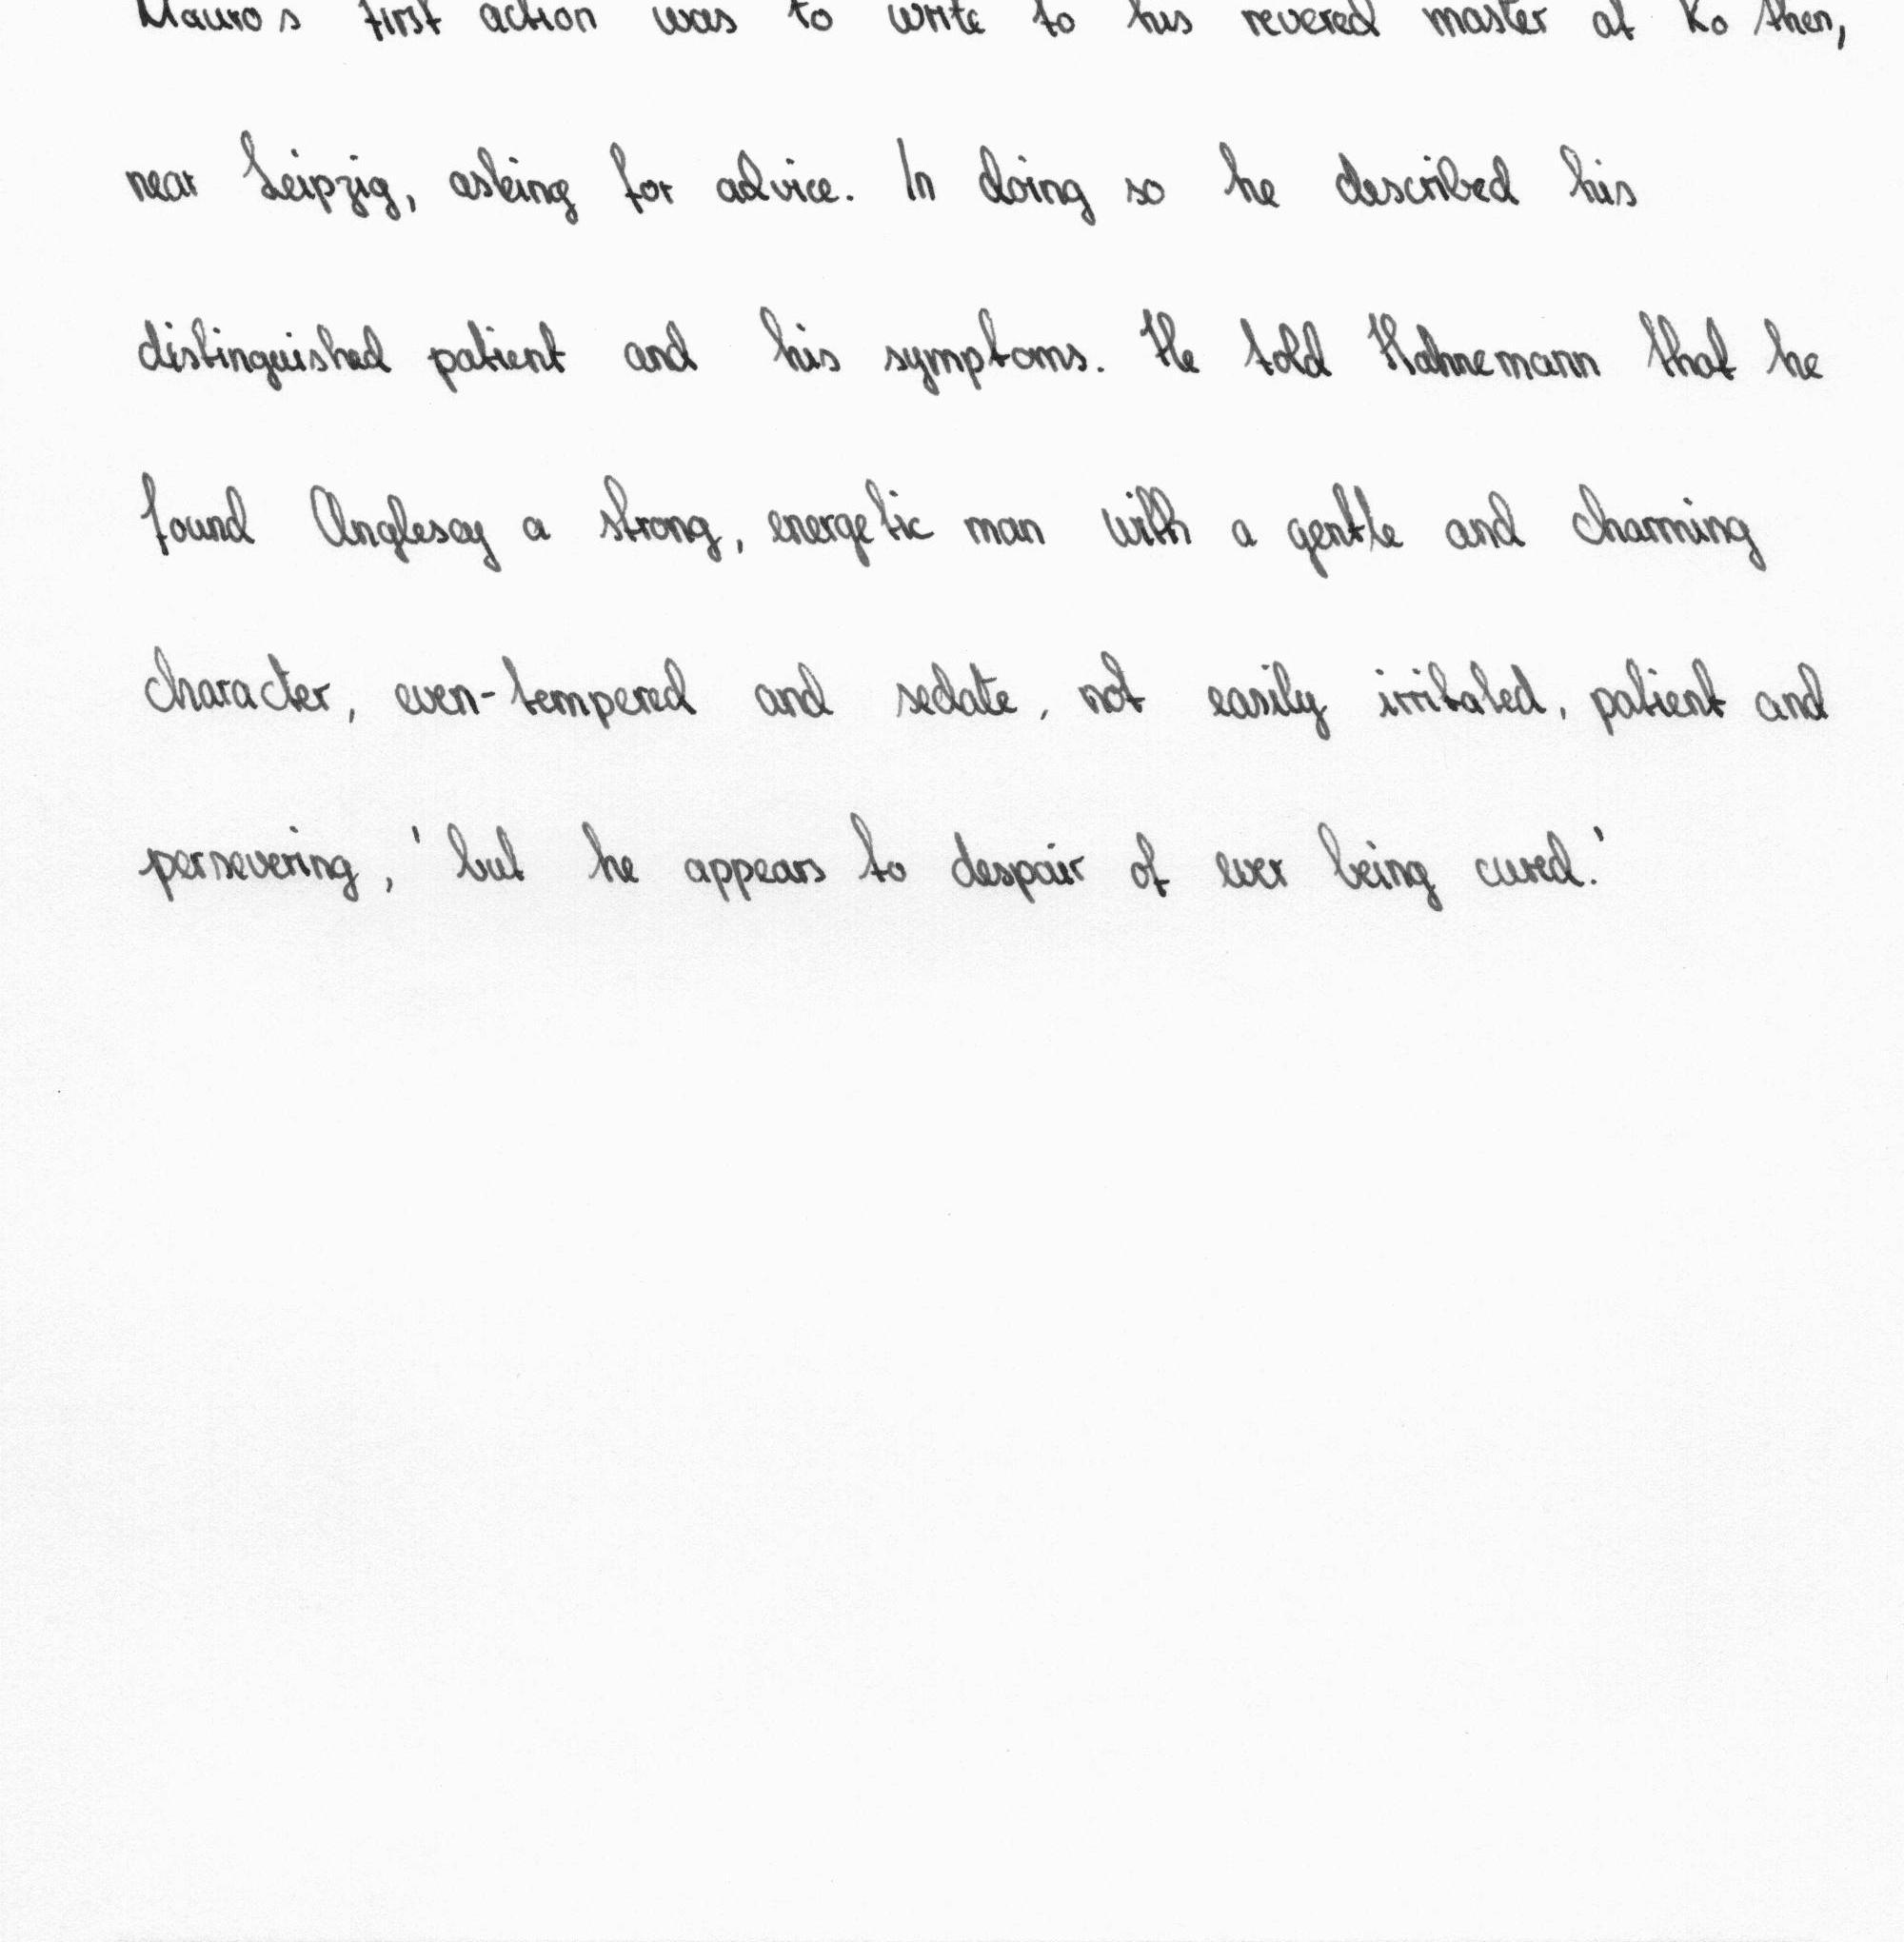 Mauro's first action was to write to his revered master at Ko then,
near Leipzig, asking for advice. In doing so he described his
distinguished patient and his symptoms. He told Hahnemann that he
found Anglesey a strong, energetic man with a gentle and charming
character, even-tempered and sedate, not easily irritated, patient and
persevering, 'but he appears to despair of ever being cured.'